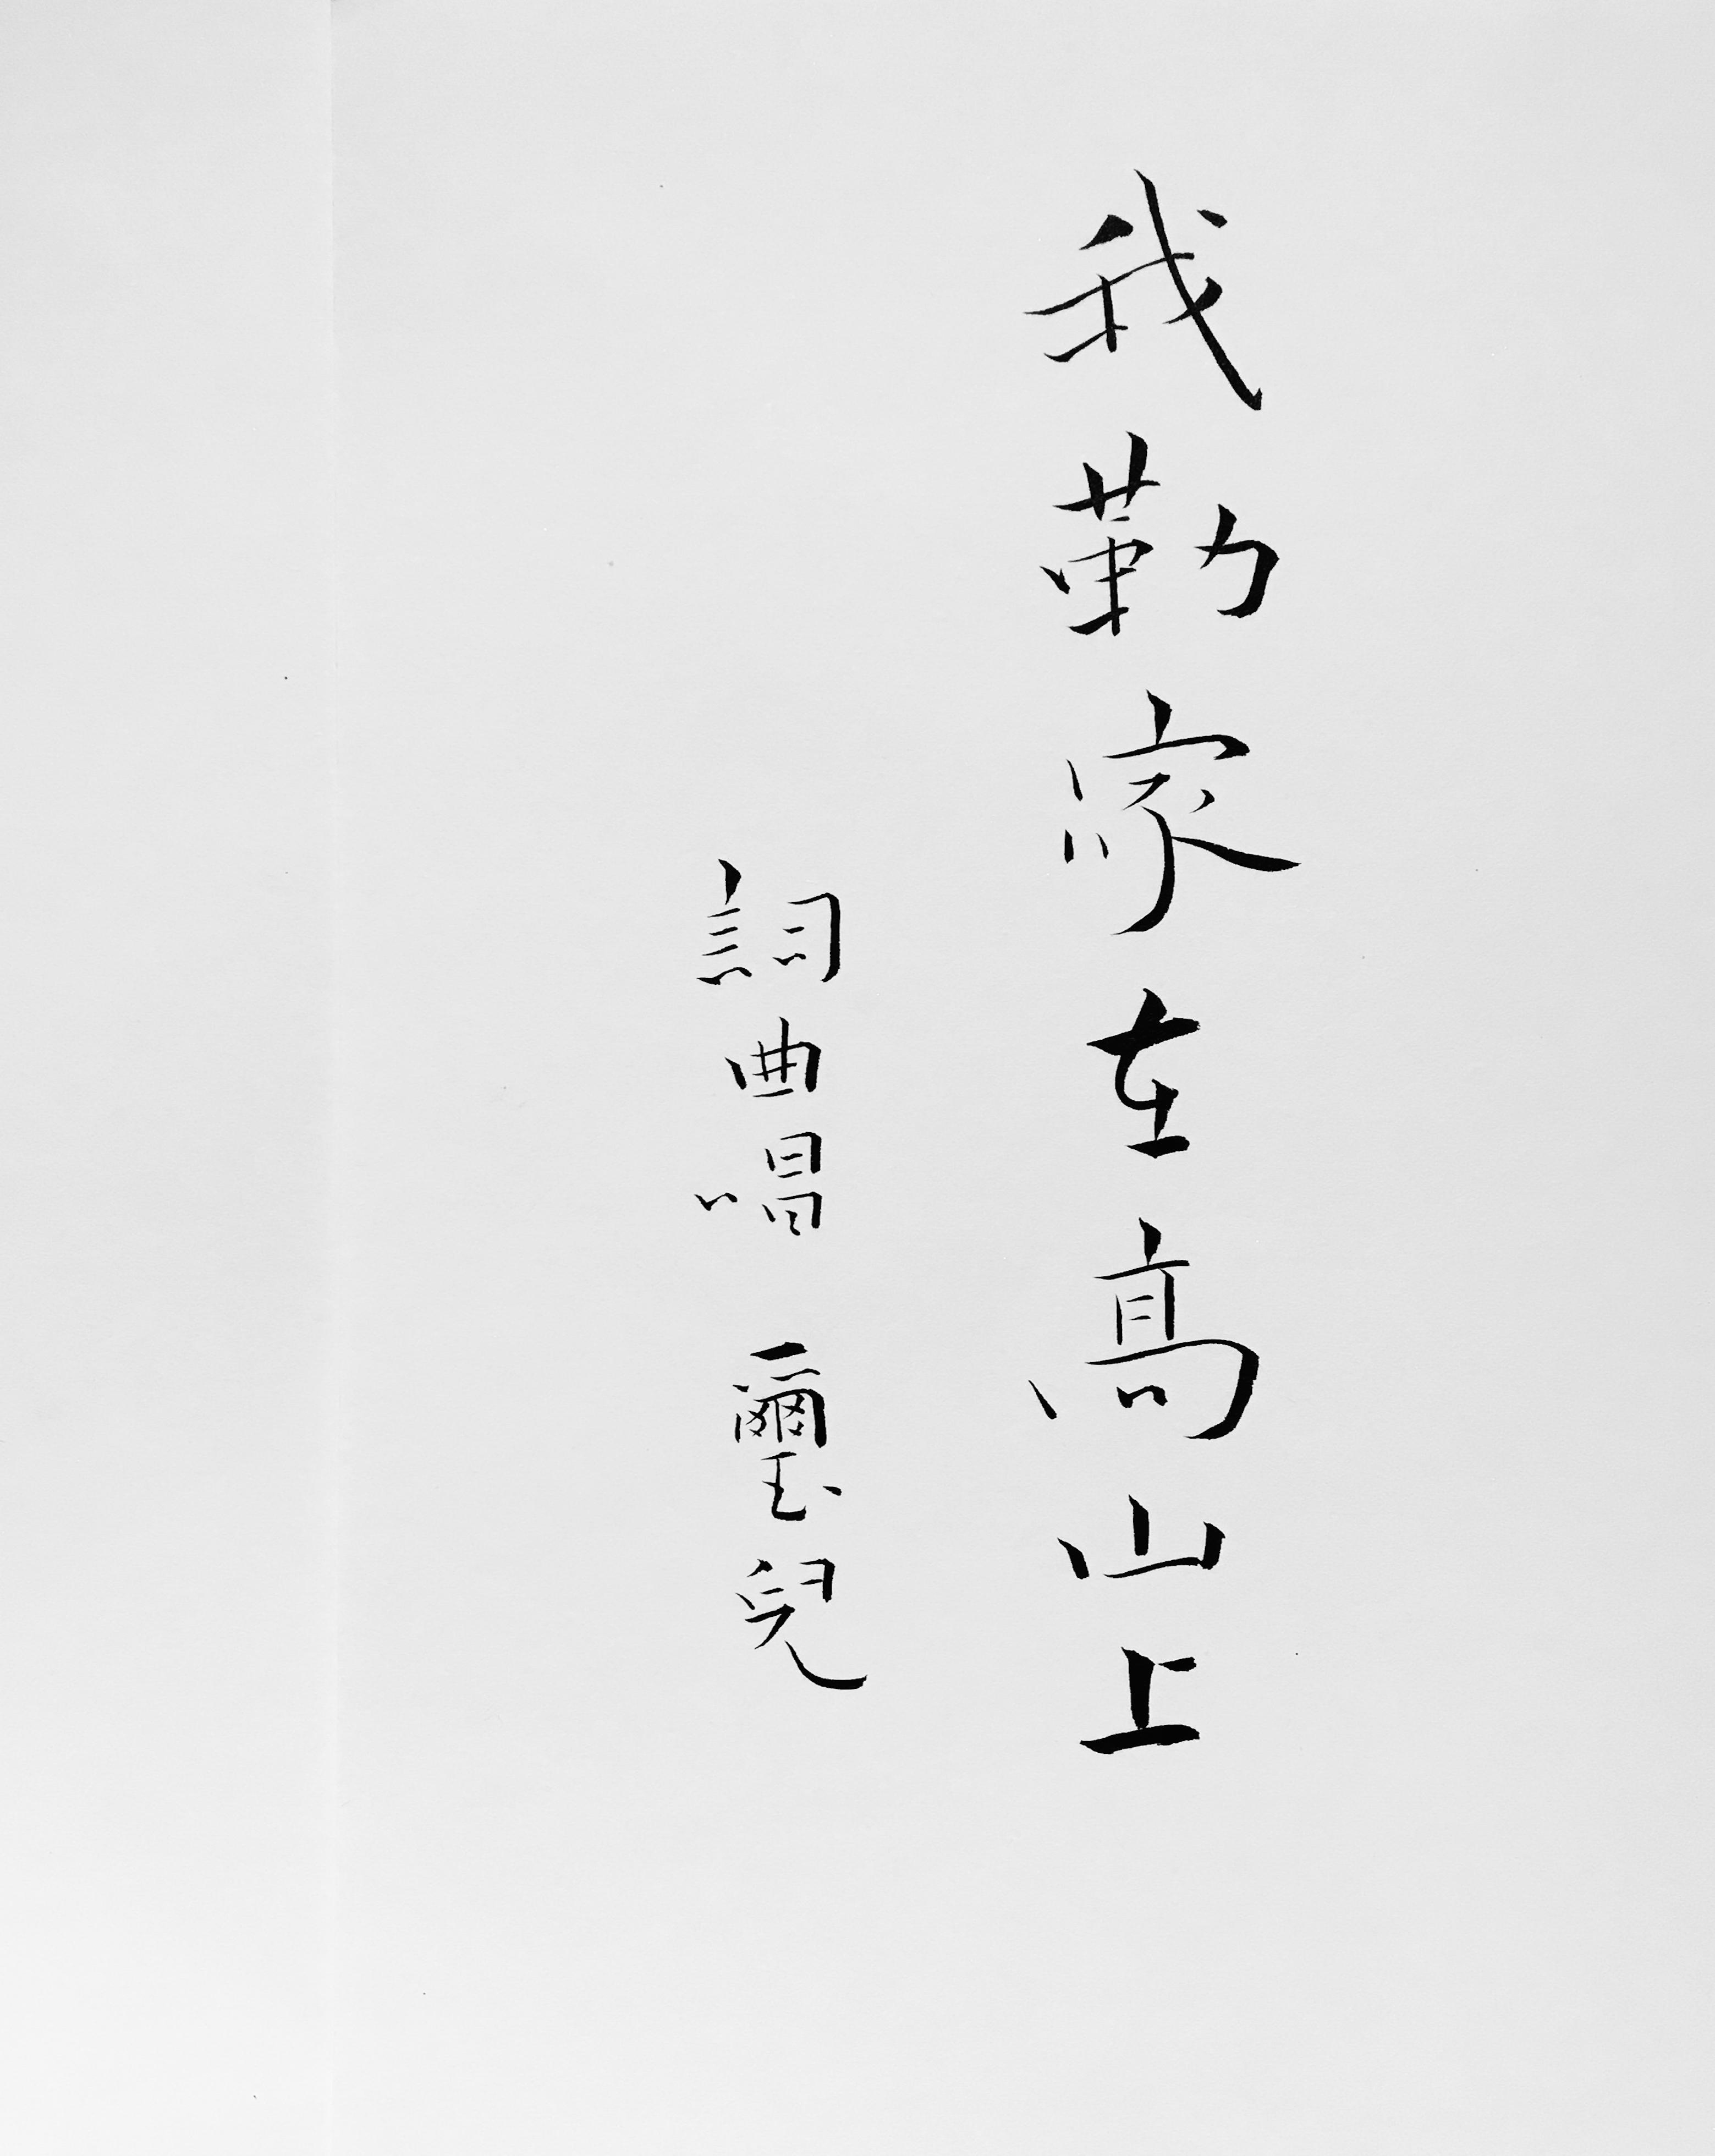 我勒家在高山上
詞曲唱 璽兒